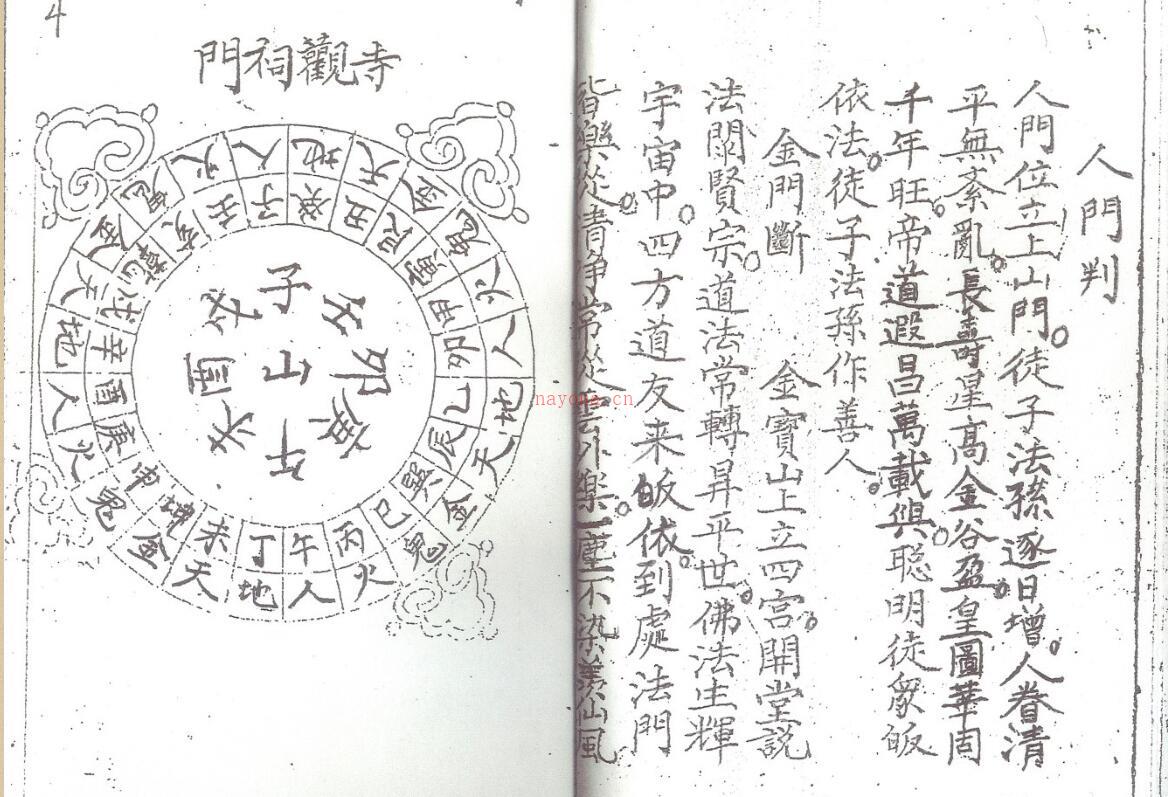 人門判
人門位立上山門。徒子法孫逐日增。人眷清
平無紊亂。長壽星高金谷盈。皇圖華固
千年旺。帝道遐昌萬載興。聰明徒眾皈
依法。徒子法孫作善人。
金門斷
金寶山上立四宮。開堂説
法闡賢宗。道法常轉昇平世。佛法生輝
宇宙中。四方道友来皈依。到處法門
皆樂從。清淨常從雲外樂。一塵不染羨仙風
4
寺觀祠門
天地人火鬼金天地人火鬼金天地人火鬼金天地人火鬼金
子癸丑艮寅甲卯乙辰巽巳丙午丁未坤申庚酉辛戌乾亥壬
子
卯
午
山
nayong.cn